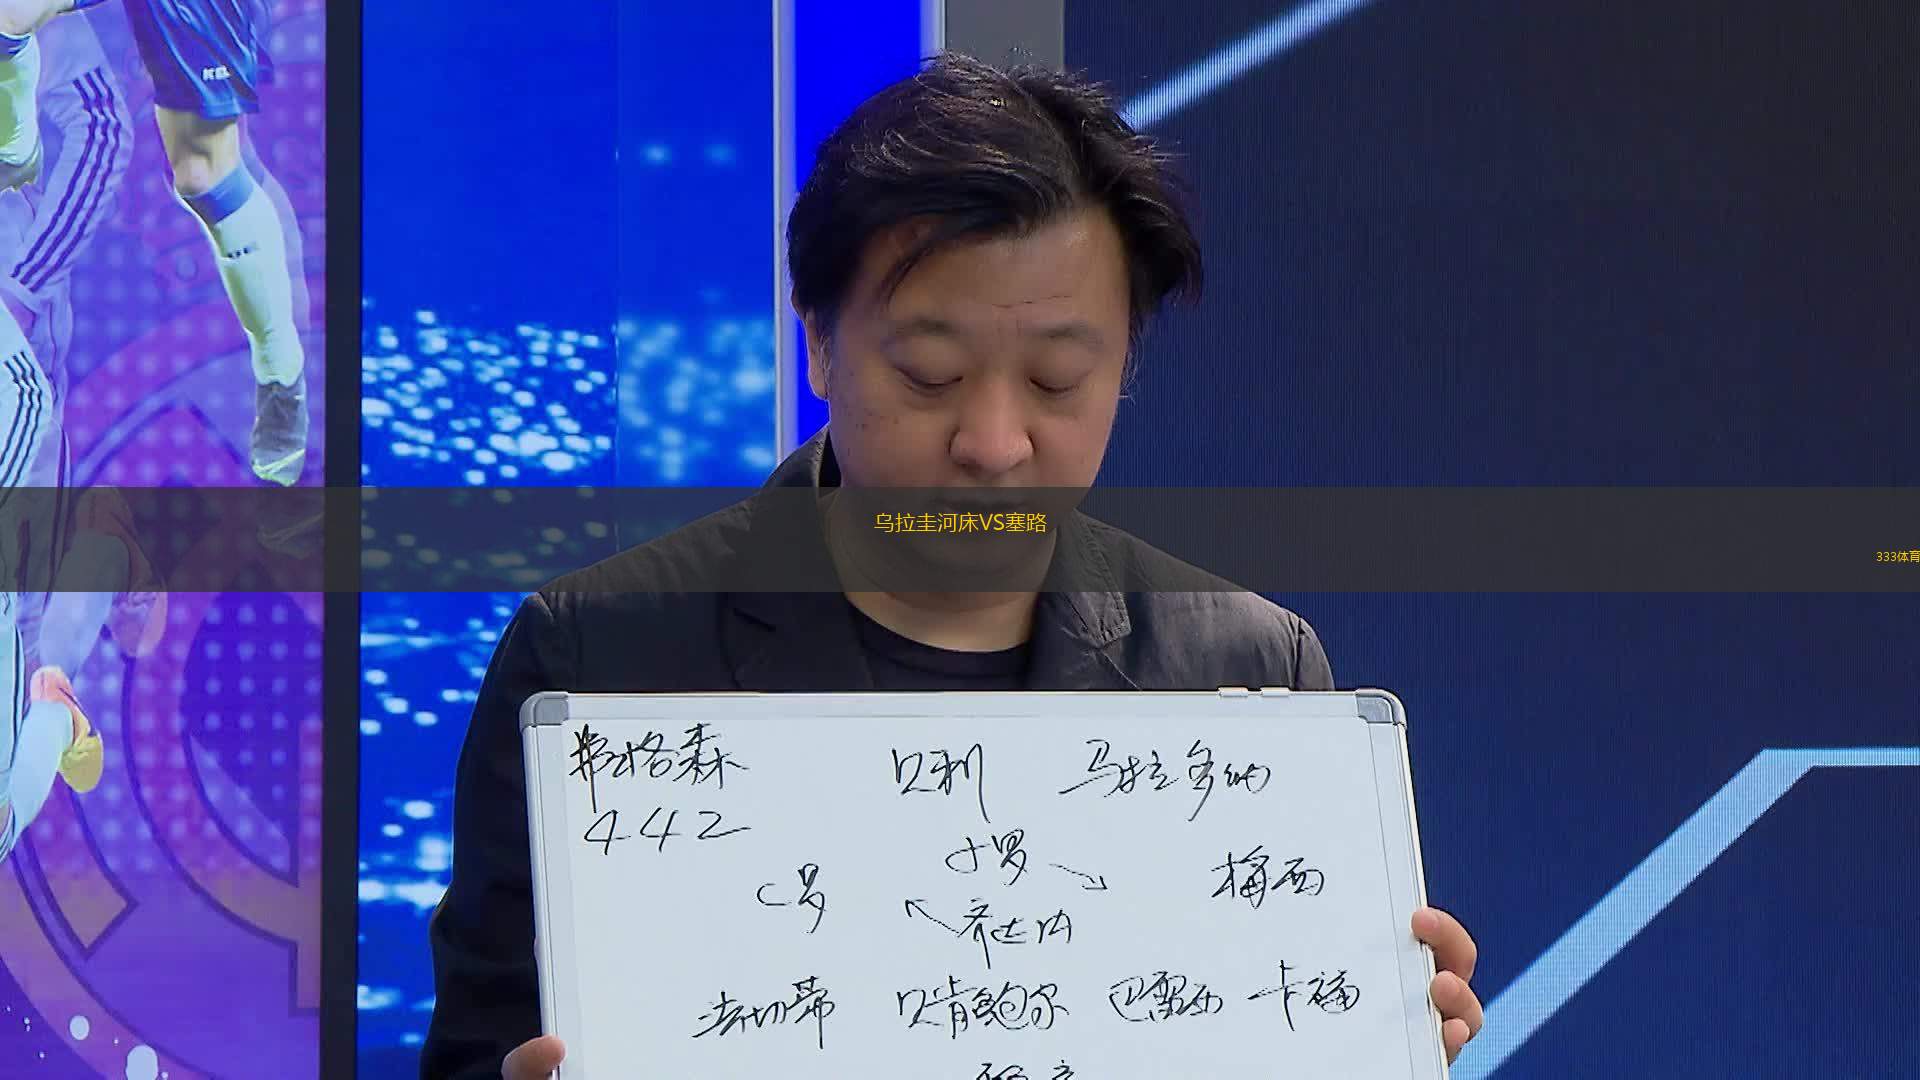 乌拉圭河床VS塞路
333体育
弗格森 贝利 马拉多纳
442
小罗
C罗 梅西
齐达内
法切蒂 贝肯鲍尔 巴雷西 卡福